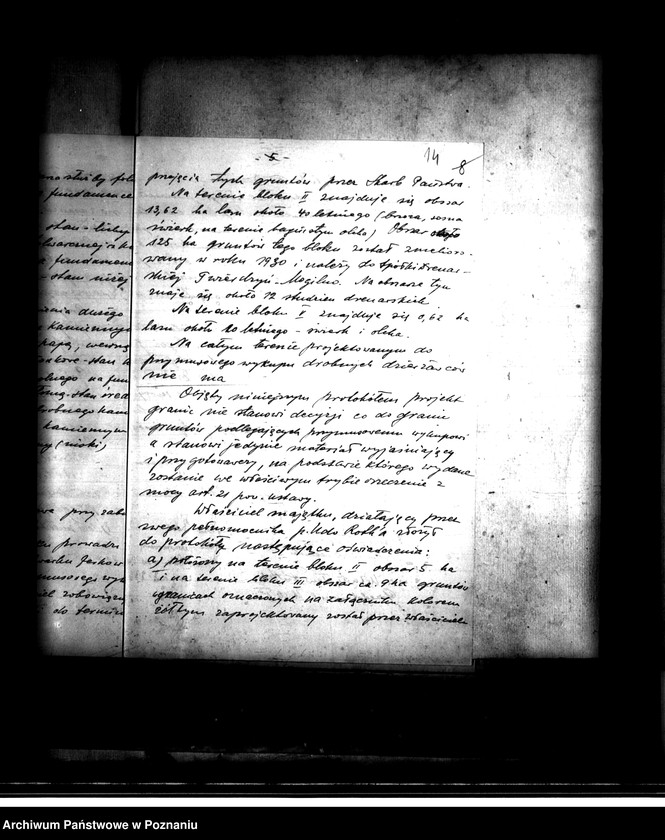 14
8
- 5 -
przejęcia tych gruntów przez Skarb Państwa.
Na terenie bloku II znajduje się obszar
13,62 ha lasu około 40 letniego (brzoza, sosna
świerk, na terenie bagnistym olcha) Obszar około
125 ha gruntów tego bloku został zmelioro-
wany w roku 1930 i należy do Spółki Drenar-
skiej Twierdzyń-Mogilno. Na obszarze tym
znaj się około 12 studzien drenarskich.
Na terenie bloku V znajduje się 0,62 ha
lasu około 10 letniego - świerk i olcha.
Na całym terenie projektowanym do
przymusowego wykupu drobnych dzierżawców
nie ma
Objęty niniejszym protokółem projekt
granic nie stanowi decyzji co do granic
gruntów podlegających przymusowemu wykupowi
a stanowi jedynie materiał wyjaśniający
i przygotowawczy, na podstawie którego wydane
zostanie we właściwym trybie orzeczenie z
mocy art. 21 pow. ustawy.
Właściciel majątku, działający przez
swego pełnomocnika p. Udo Roth'a złożył
do protokółu następujące oświadczenia:
a) położony na terenie bloku II obszar 5. ha
i na terenie bloku III obszar ca. 9 ha gruntów
w granicach oznaczonych na załączniku kolorem
żółtym zaprojektowany został przez właściciela
fundamencie
stan i liczby
fundamen
- stan niżej
kamiennym
przy zabu
prowadzi
do terminu
Archiwum Państwowe w Poznaniu